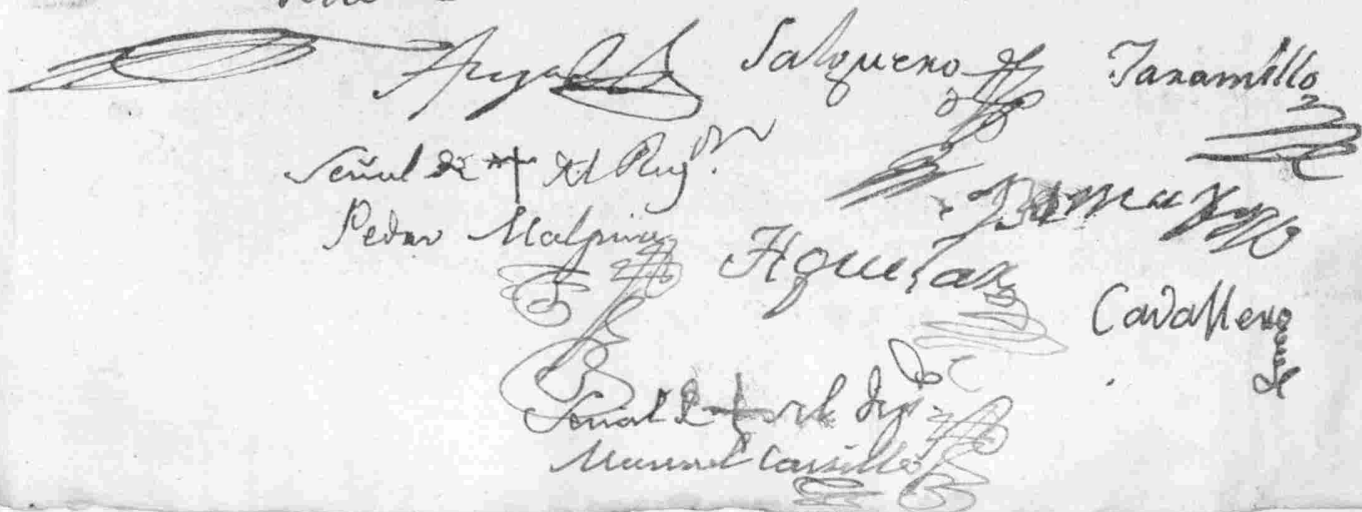 Salguero Jaramillo
Señal de + del Reg.or
Pedro Malpica
Aguilar
Cavallero
Señal de + del Dip.do
Manuel Carrillo